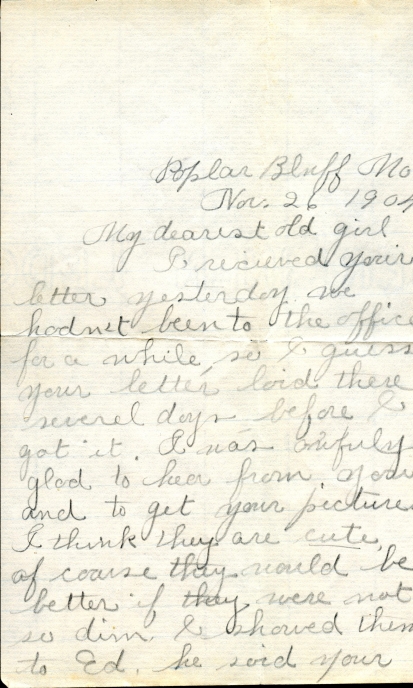 Poplar Bluff Mo
Nov. 26 1904
My dearest old girl
I recieved your
letter yesterday we
hadn't been to the office
for a while, so I guess
your letter laid there
severel days before I
got it. I was awfuly
glad to hear from you
and to get your picture
I think they are cute,
of course they would be
better if they were not
so dim. I showed them
to Ed. he said your